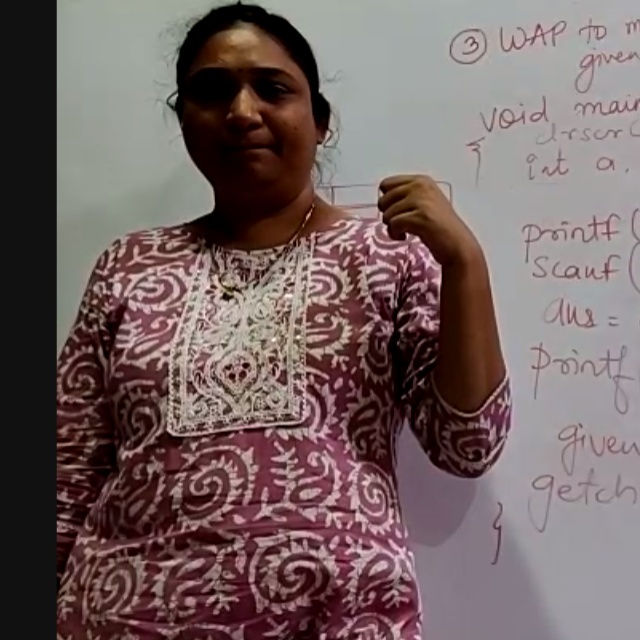 ③ WAP to m
given
void main
{ clrscr(
int a.
printf (
scanf (
ans =
printf
given
getch
}